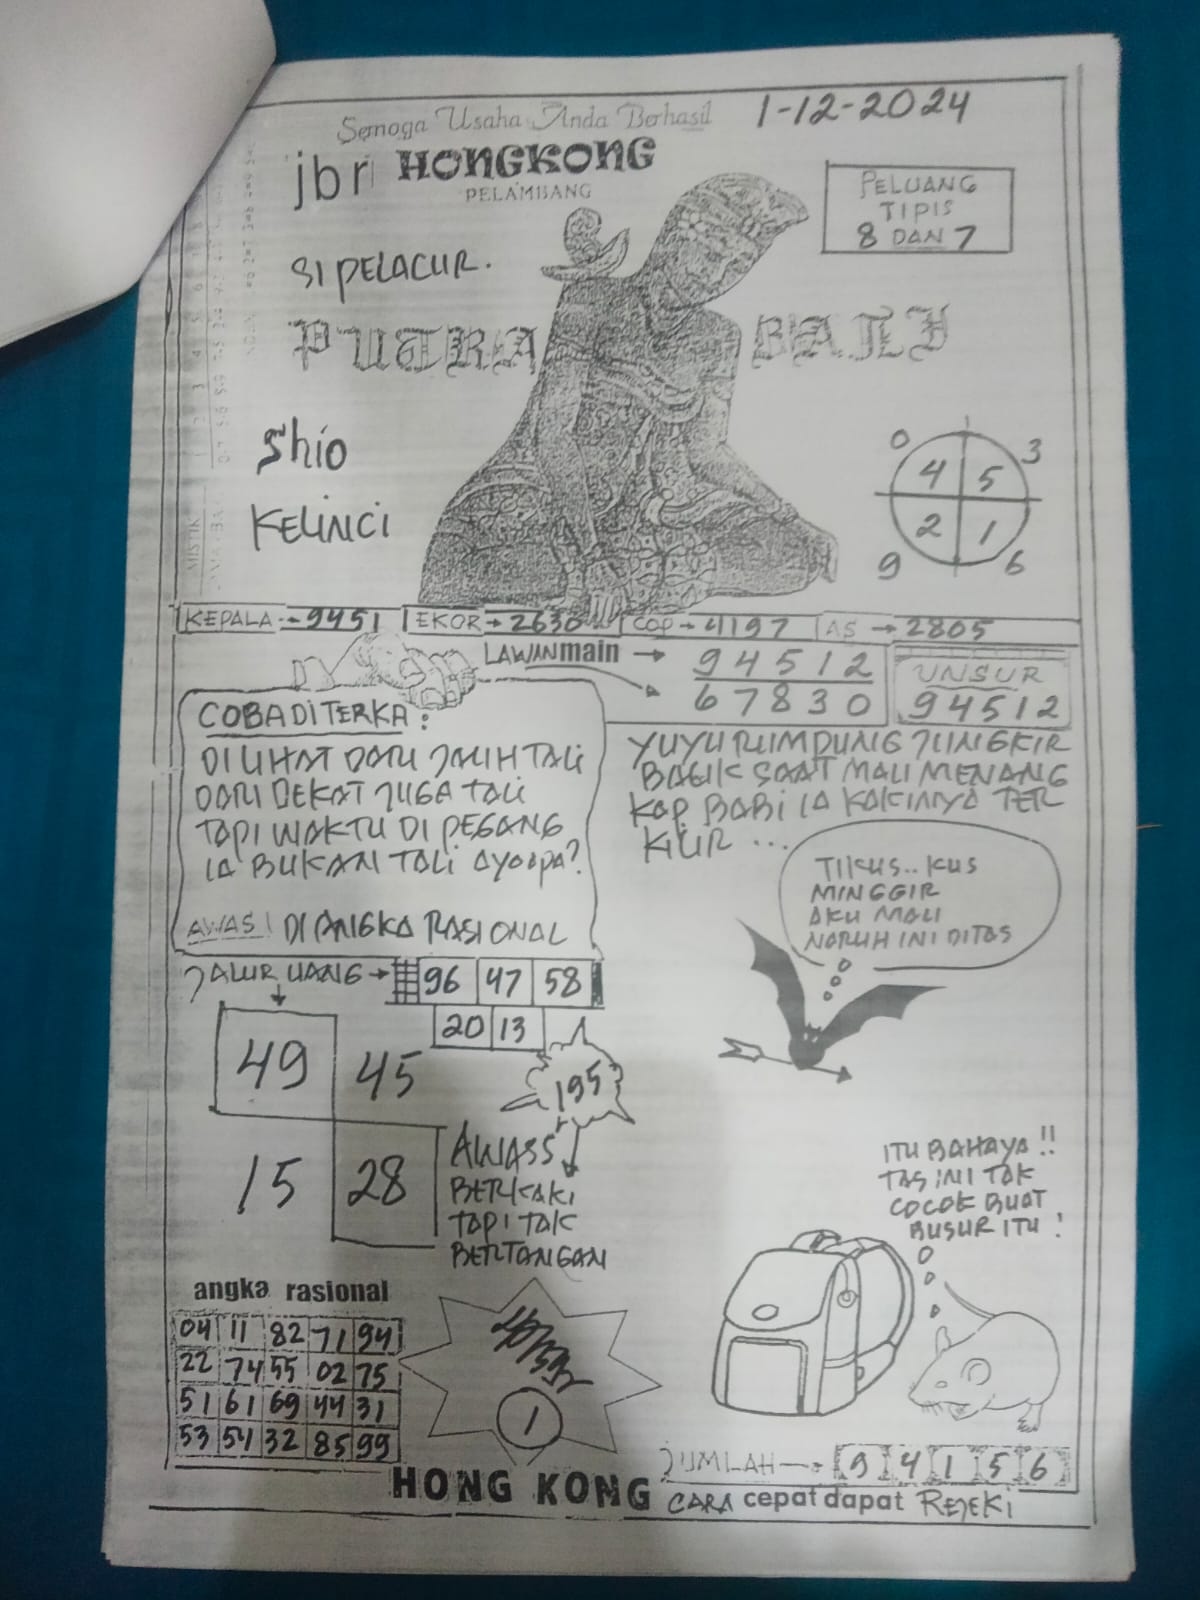 Semoga Usaha Anda Berhasil
1-12-2024
jbr HONGKONG
PELAMBANG
PELUANG
TIPIS
8 DAN 7
SI PELACUR.
PUTRA BALI
Shio
KELINCI
0 3
4 5
2 1
9 6
MISTIK
KEPALA → 9451 EKOR → 2630 COP → 4197 AS → 2805
LAWAN main → 94512
67830
UNSUR
94512
COBA DITERKA :
DILIHAT DARI JAUH TALI
DARI DEKAT JUGA TALI
TAPI WAKTU DI PEGANG
IA BUKAN TALI AYO APA?
AWAS! DI ANGKA RASIONAL
YUYU RUMPUNG JUNGKIR
BALIK SAAT MAU MENANG
KAP BABI IA KAKINYA TER
KILIR ...
TIKUS..KUS
MINGGIR
AKU MAU
NARUH INI DITAS
JALUR UANG → 96 47 58
20 13
49 45
15 28
195
AWASS
BERKAKI
TAPI TAK
BERTANGAN
ITU BAHAYA !!
TAS INI TAK
COCOK BUAT
BUSUR ITU !
angka rasional
04 11 82 71 94
22 74 55 02 75
51 61 69 44 31
53 54 32 85 99
1
JUMLAH → 9 4 1 5 6
HONG KONG CARA cepat dapat REJEKI